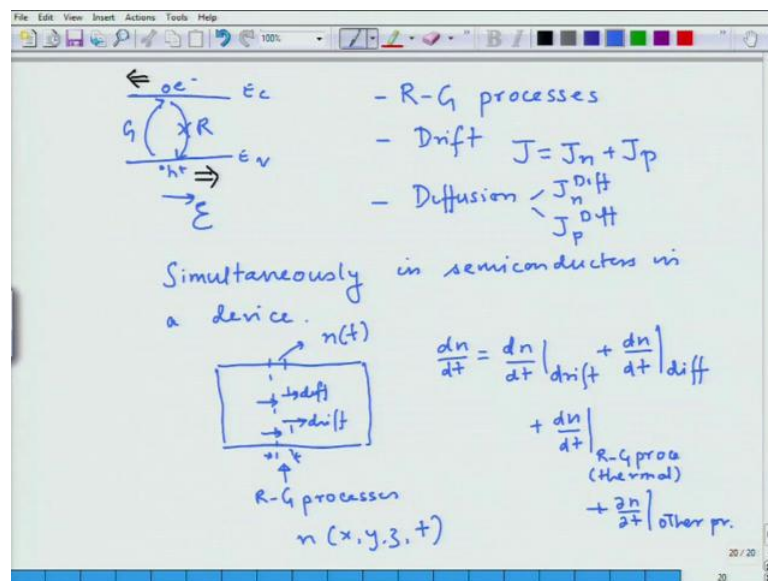 File Edit View Insert Actions Tools Help
100%
⇐ oe⁻ Ec
G R
°h⁺ ⇒ Ev
→ ε
- R-G processes
- Drift J = Jn + Jp
- Diffusion Jn^Diff
Jp^Diff
Simultaneously in semiconductors in
a device.
n(t)
→ diff
→ drift
R-G processes
n (x, y, z, t)
dn/dt = dn/dt|drift + dn/dt|diff
+ dn/dt|R-G proce
(thermal)
+ ∂n/∂t|other pr.
20 / 20
20